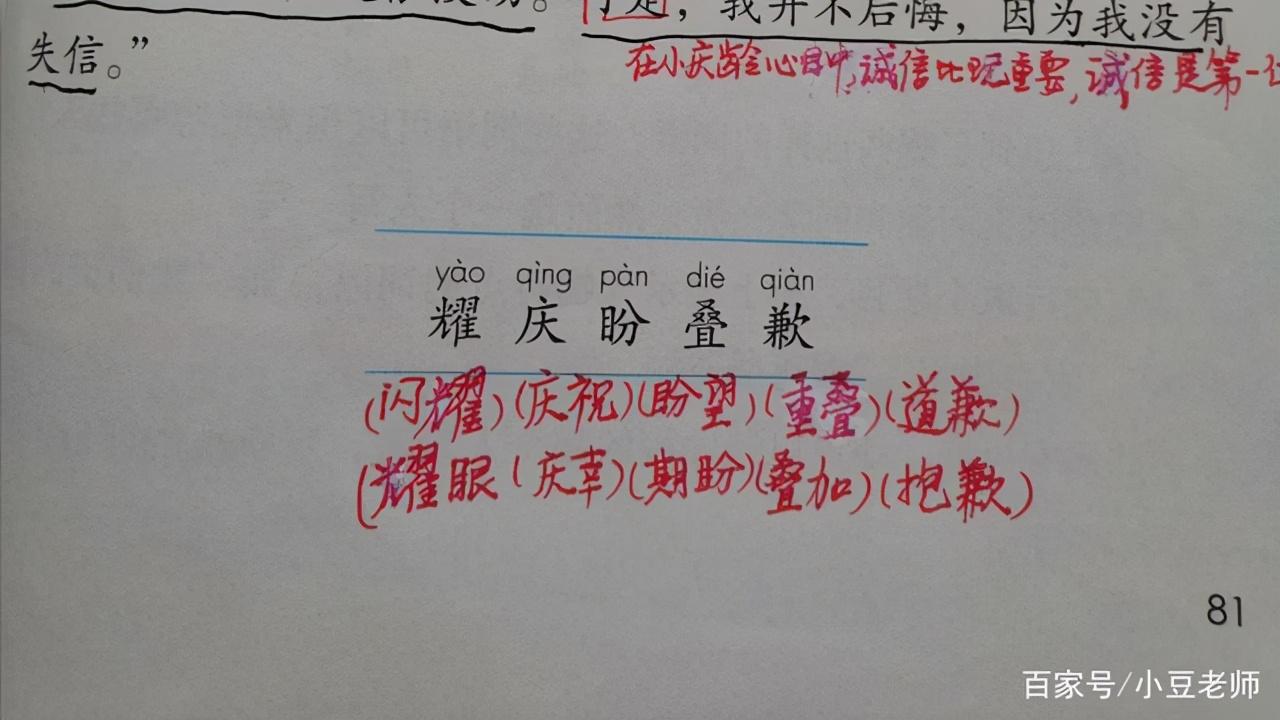 是，我并不后悔，因为我没有
失信。”
在小庆龄心目中，诚信比玩重要，诚信是第一位
yào qìng pàn dié qiàn
耀 庆 盼 叠 歉
（闪耀）（庆祝）（盼望）（重叠）（道歉）
（耀眼（庆幸）（期盼）（叠加）（抱歉）
81
百家号/小豆老师